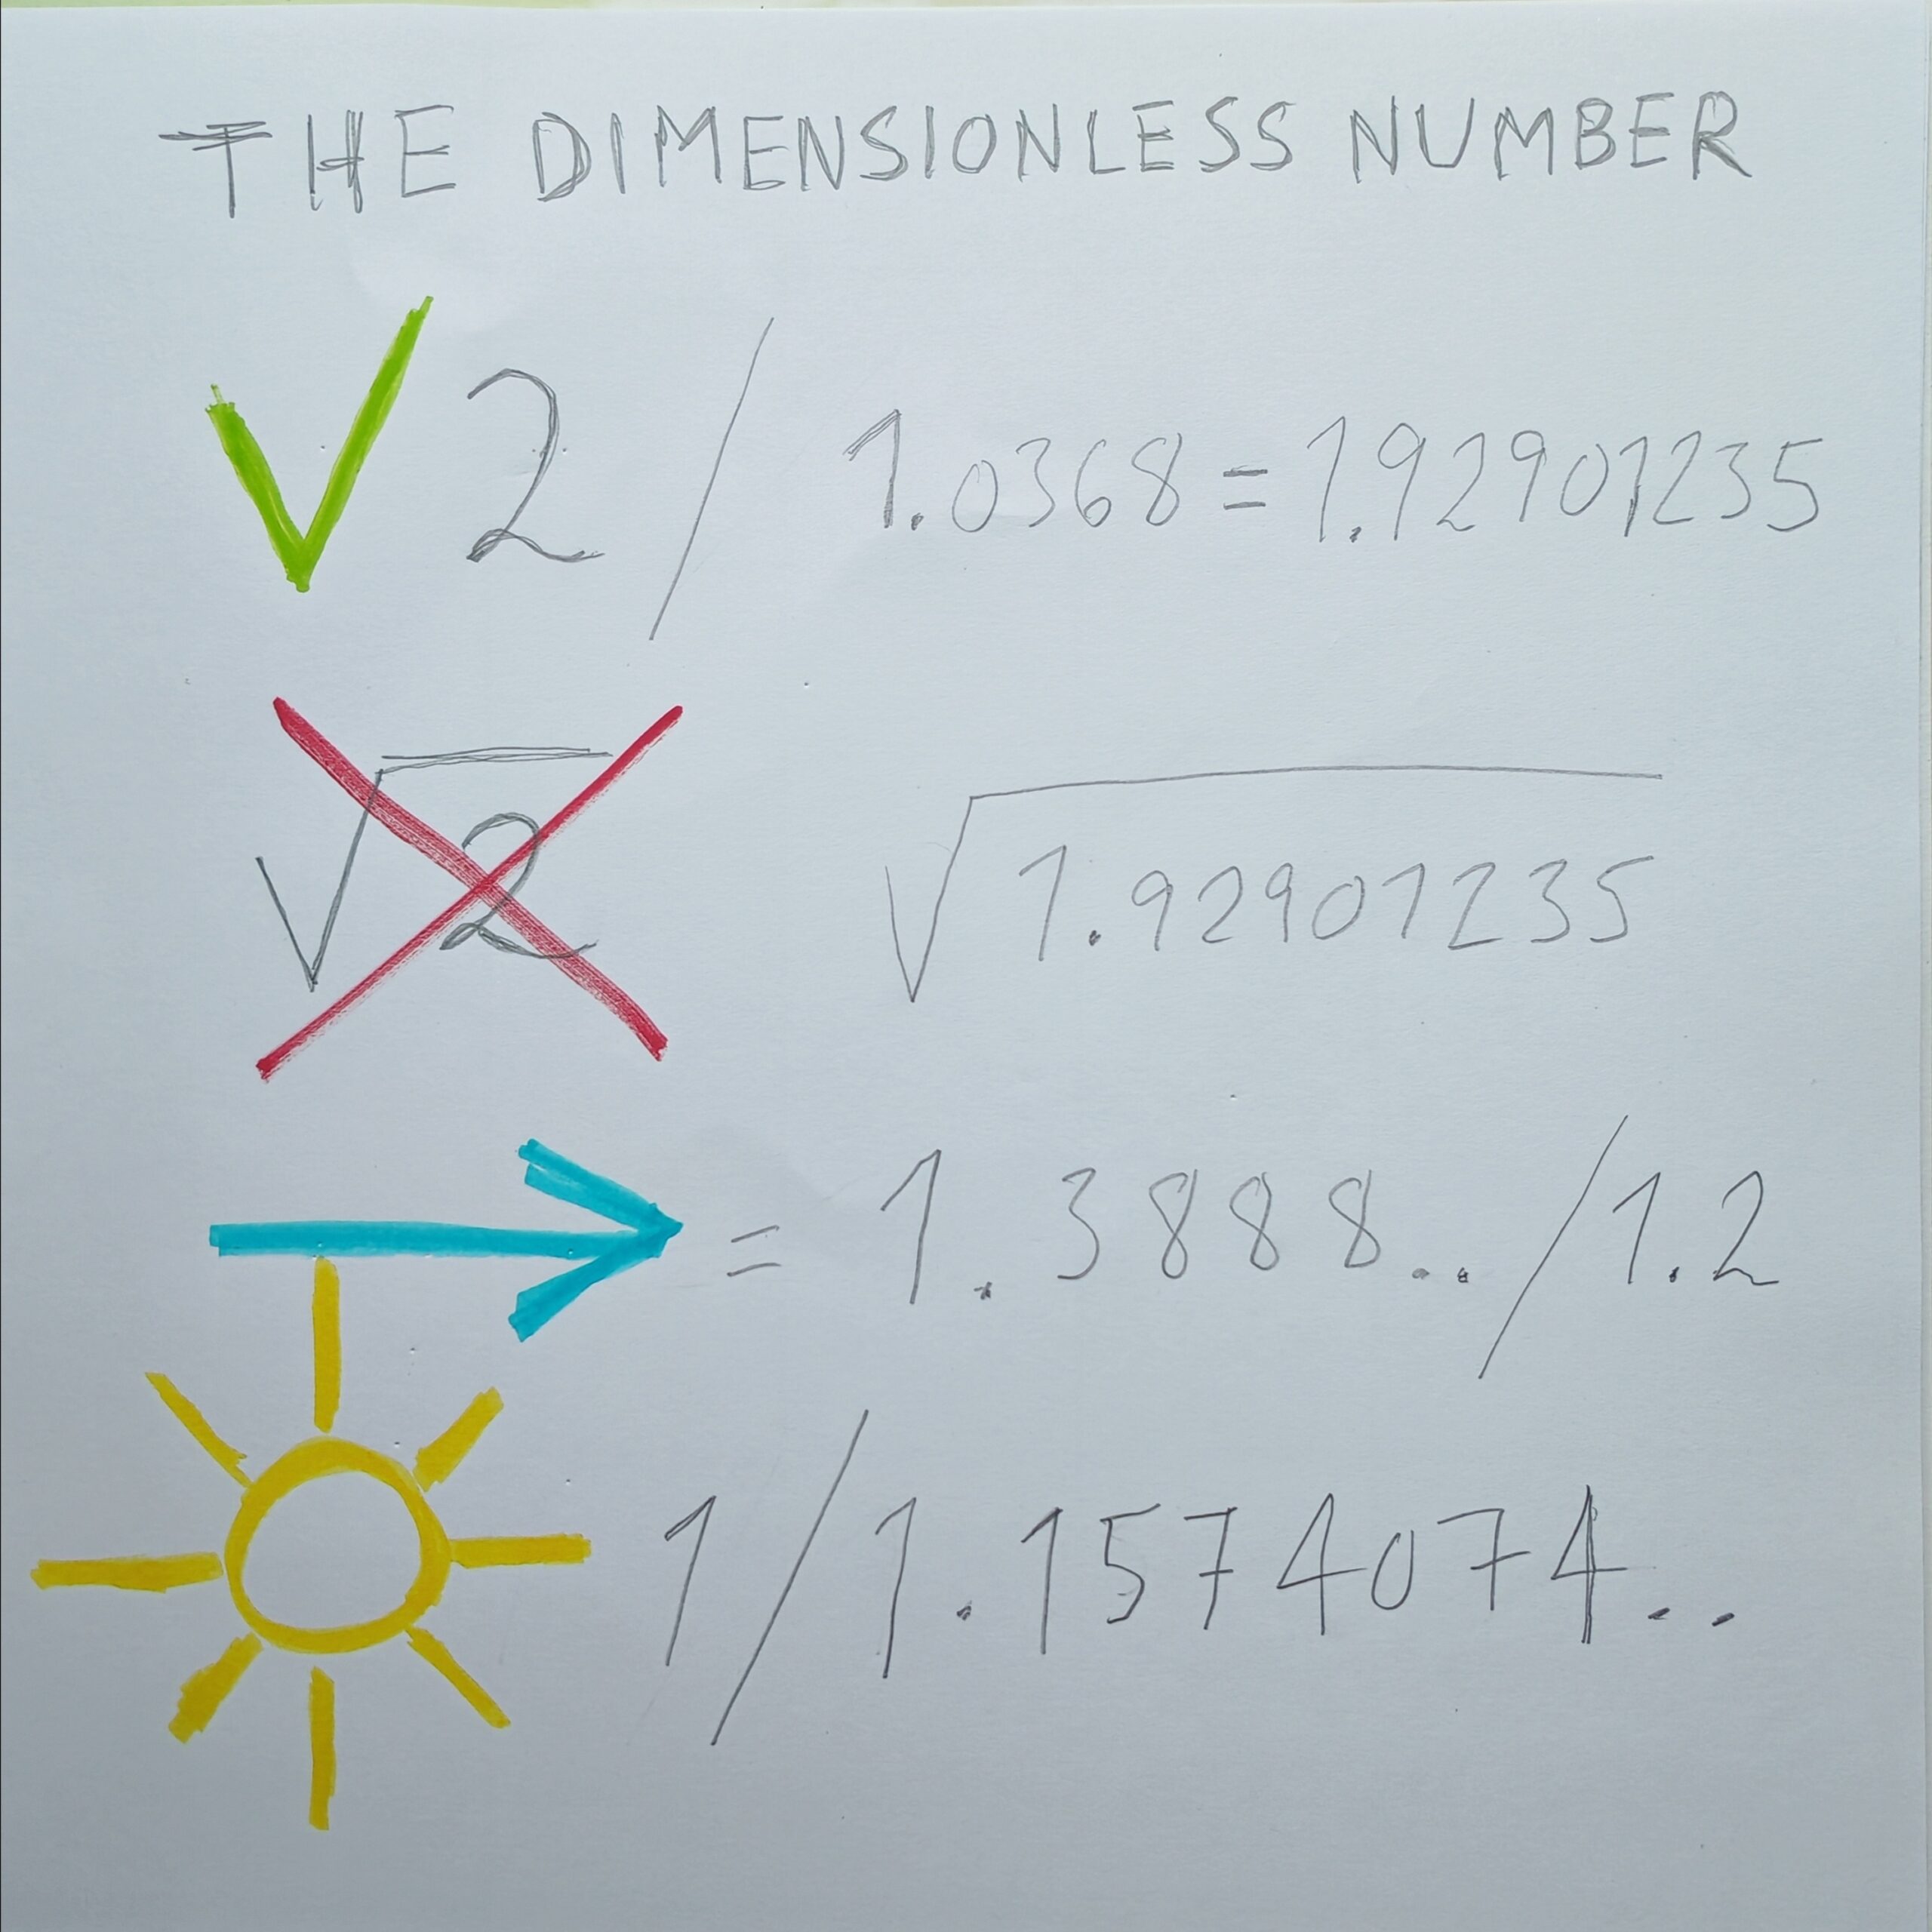 THE DIMENSIONLESS NUMBER
2 / 1.0368 = 1.92901235
√2 √1.92901235
= 1.3888.. / 1.2
1 / 1.1574074..